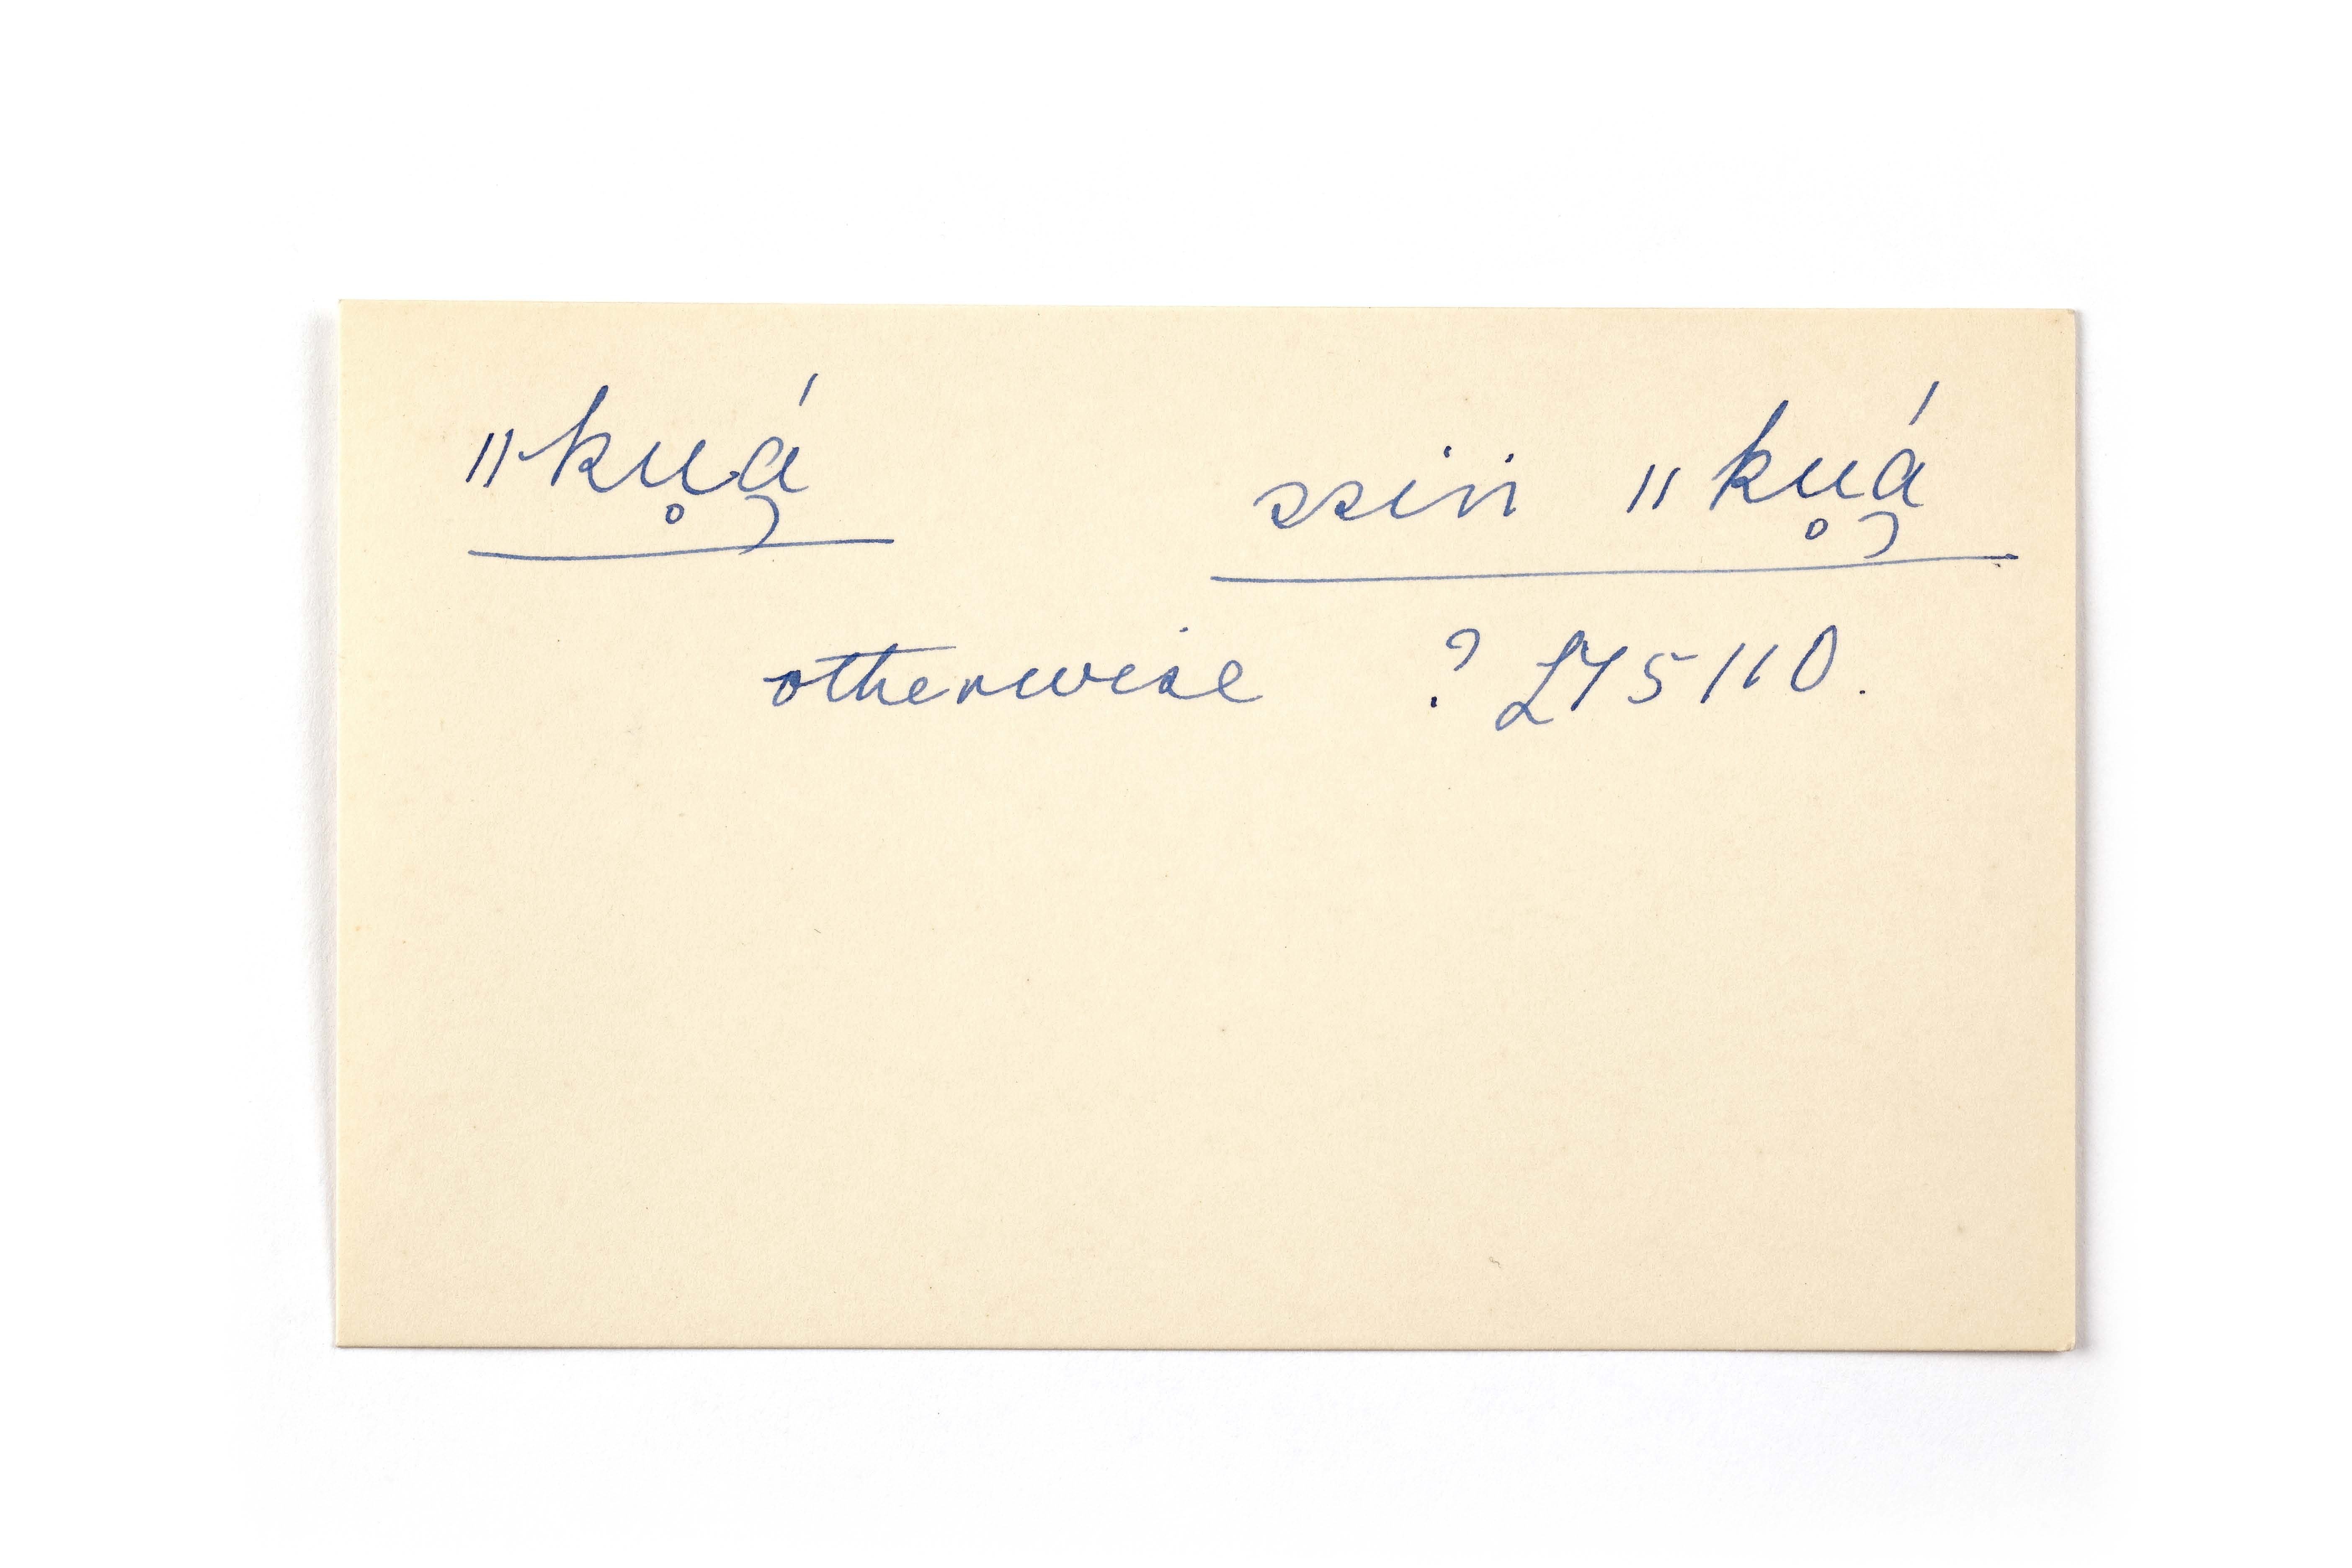 ǁku̥á̡ ssin ǁku̥á̡
otherwise ? L75110.